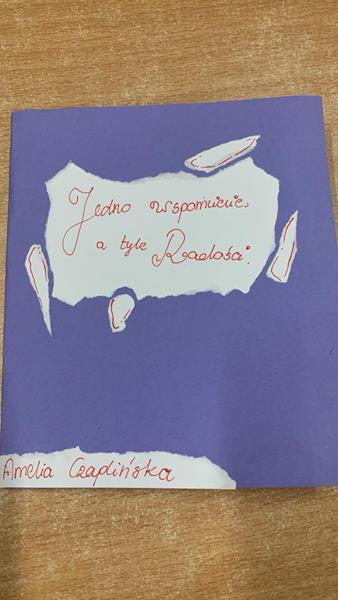 Jedno wspomnienie,
a tyle Radości.
Amelia Czaplińska